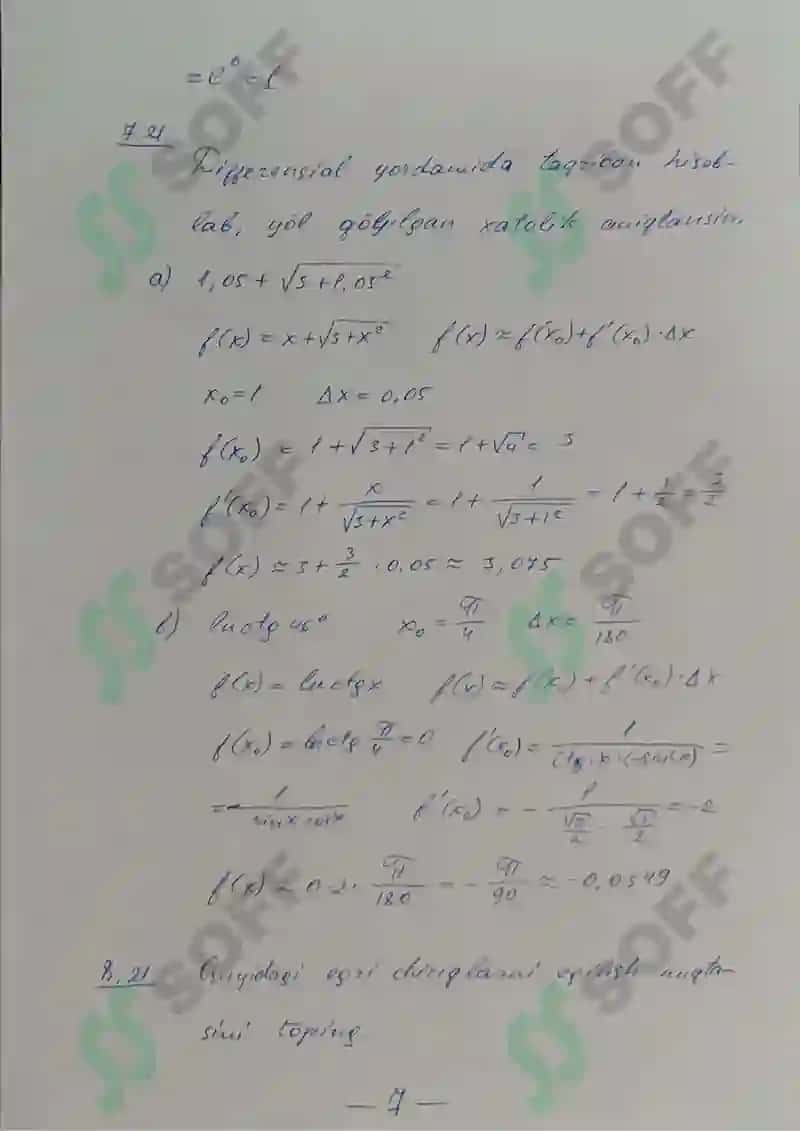 = e⁰ = 1
7.21
Differensial yordamida taqriban hisob-
lab, yöl qöyilgan xatolik aniqlansin.
a) 1,05 + √(3 + 1,05²)
f(x) = x + √(3 + x²)   f(x) ≈ f(x₀) + f'(x₀) · Δx
x₀ = 1   Δx = 0,05
f(x₀) = 1 + √(3 + 1²) = 1 + √4 = 3
f'(x₀) = 1 + x/√(3 + x²) = 1 + 1/√(3 + 1²) = 1 + 1/2 = 3/2
f(x) ≈ 3 + 3/2 · 0,05 ≈ 3,075
b) ln ctg 46°   x₀ = π/4   Δx = π/180
f(x) = ln ctg x   f(x) ≈ f(x₀) + f'(x₀) · Δx
f(x₀) = ln ctg π/4 = 0   f'(x₀) = 1/(ctg x · (-sin² x)) =
= - 1/(sin x cos x)   f'(x₀) = - 1/(√2/2 · √2/2) = -2
f(x) ≈ 0 - 2 · π/180 = - π/90 ≈ -0,0349
8.21 Quyidagi egri chiziqlarni egilish nuqta-
sini toping.
— 7 —
SOFF
SOFF
SOFF
SOFF
SOFF
SOFF